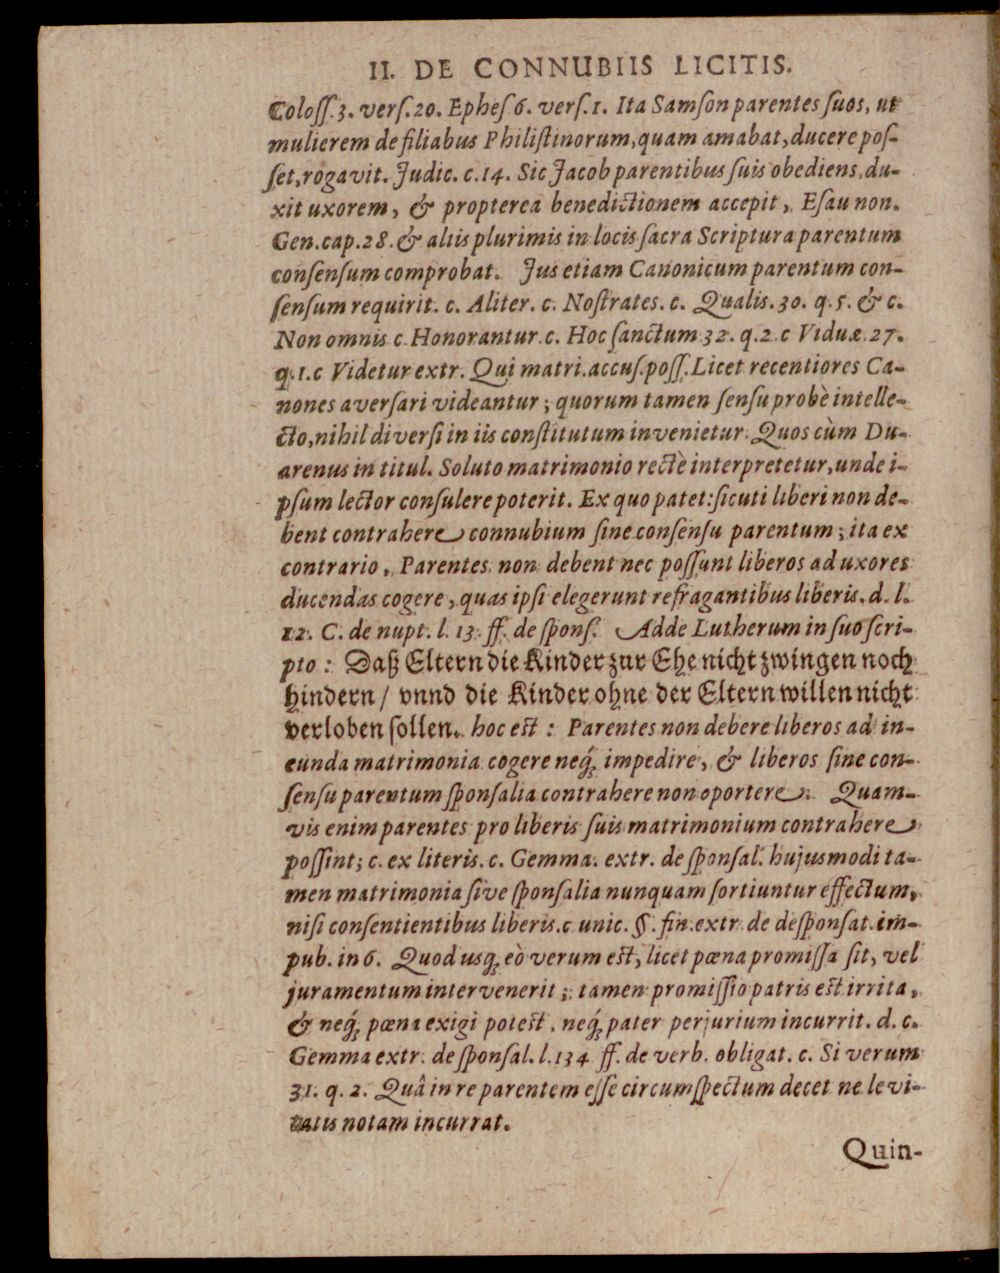 II. DE CONNUBIIS LICITIS.
Coloſſ.3. verſ.20. Epheſ.6. verſ.1. Ita Samſon parentes ſuos, ut
mulierem de filiabus Philiſtinorum, quam amabat, ducere poſ-
ſet, rogavit. Judic. c.14. Sic Jacob parentibus ſuis obediens, du-
xit uxorem, & propterea benedictionem accepit, Eſau non.
Gen.cap.28. & aliis plurimis in locis ſacra Scriptura parentum
conſenſum comprobat. Jus etiam Canonicum parentum con-
ſenſum requirit. c. Aliter. c. Noſtrates. c. Qualis.30. q.5. & c.
Non omnis c. Honorantur. c. Hoc ſanctum 32. q.2. c Viduæ.27.
q.1.c Videtur extr. Qui matri.accuſ.poſſ. Licet recentiores Ca-
nones averſari videantur; quorum tamen ſenſu probè intelle-
cto, nihil diverſi in iis conſtitutum invenietur. Quos cùm Du-
arenus in titul. Soluto matrimonio rectè interpretetur, unde i-
pſum lector conſulere poterit. Ex quo patet: ſicuti liberi non de-
bent contrahere connubium ſine conſenſu parentum; ita ex
contrario, Parentes non debent nec poſſunt liberos ad uxores
ducendas cogere, quas ipſi elegerunt refragantibus liberis. d. l.
12. C. de nupt. l. 13 ff. de ſponſ. Adde Lutherum in ſuo ſcri-
pto: Daß Eltern die Kinder zur Ehe nicht zwingen noch
hindern / vnnd die Kinder ohne der Eltern willen nicht
verloben ſollen. hoc est: Parentes non debere liberos ad in-
eunda matrimonia cogere neq́; impedire, & liberos ſine con-
ſenſu parentum ſponſalia contrahere non oportere. Quam-
vis enim parentes pro liberis ſuis matrimonium contrahere
poſſint; c. ex literis. c. Gemma. extr. de ſponſal. hujusmodi ta-
men matrimonia ſive ſponſalia nunquam ſortiuntur effectum,
niſi conſentientibus liberis. c unic. §. fin. extr de deſponſat. im-
pub. in 6. Quod usq; eò verum est, licet pœna promiſſa ſit, vel
juramentum intervenerit; tamen promiſſio patris est irrita,
& neq́; pœna exigi potest, neq́; pater perjurium incurrit. d. c.
Gemma extr. de ſponſal. l.134 ff. de verb. obligat. c. Si verum
31. q. 2. Quâ in re parentem eſſe circumſpectum decet ne levi-
tatis notam incurrat.
Quin-